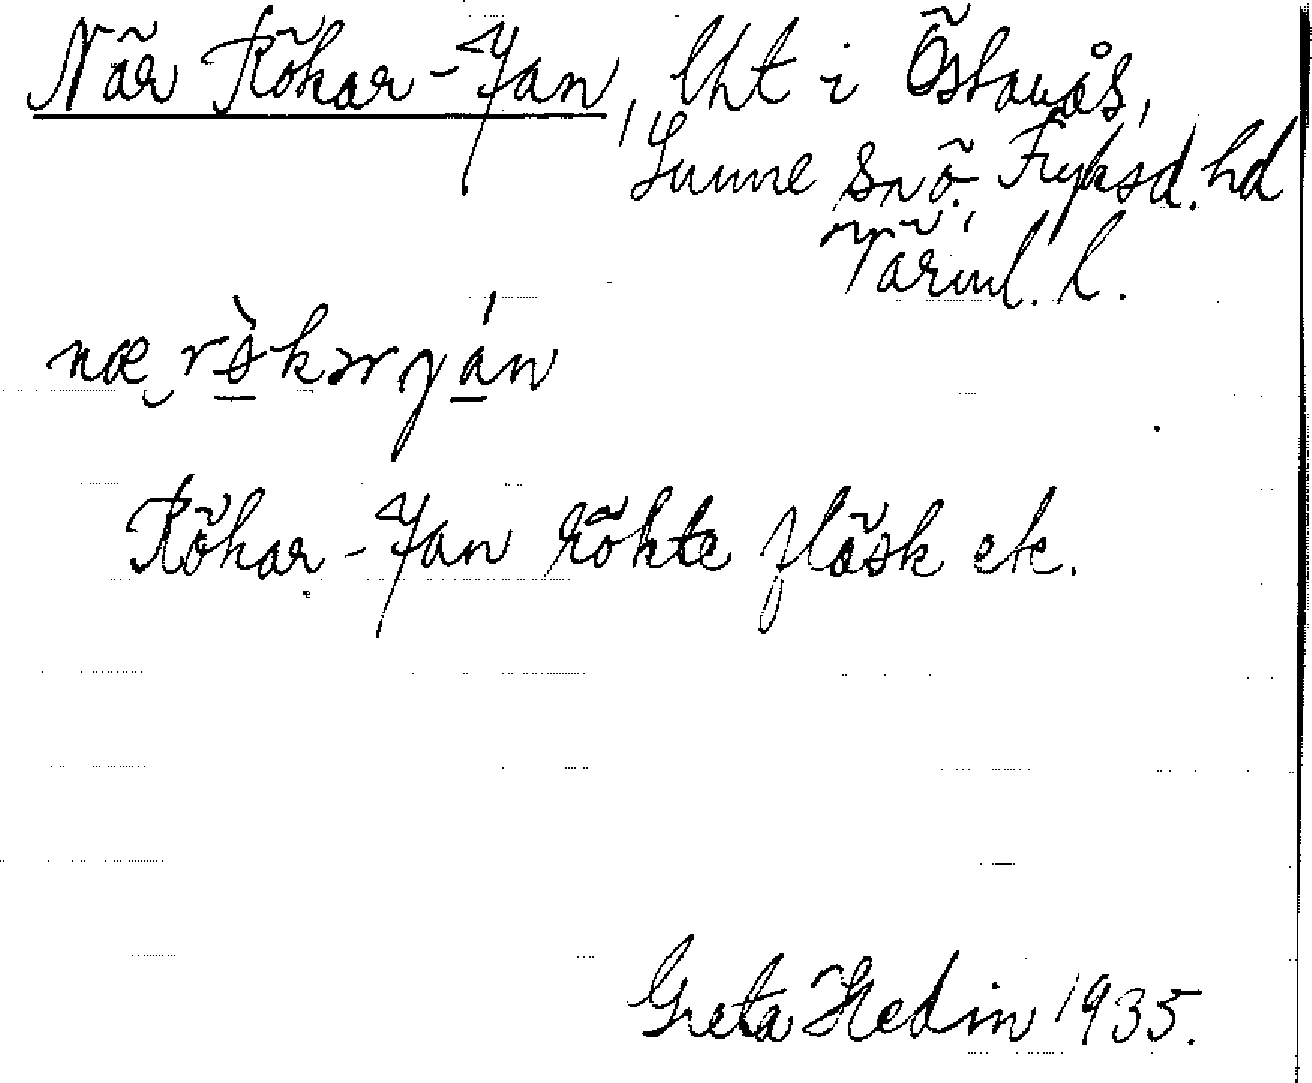 När Rökar-Jan, lht i Östanås,
Sunne sn ö. Fryksd. hd
Värml. l.
næ rökər yán
Rökar-Jan rökte fläsk etc.
Greta Hedin 1935.